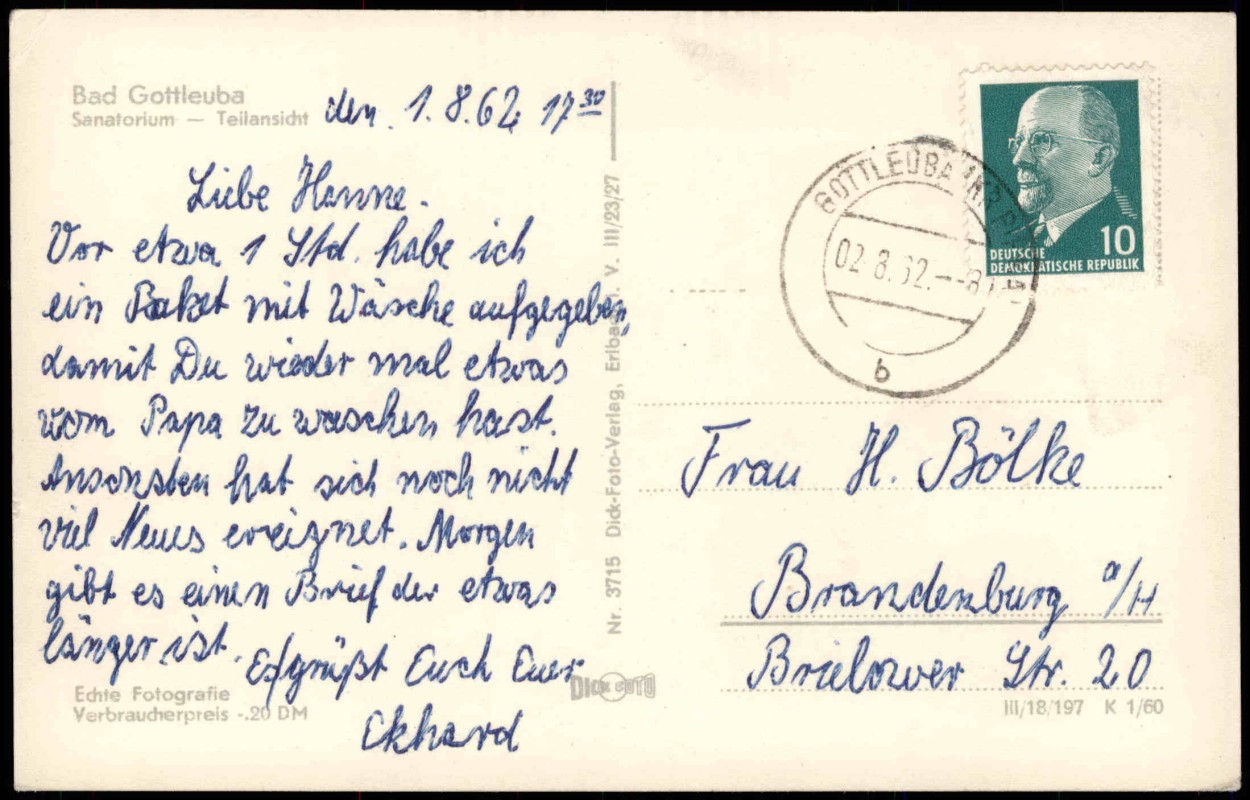 Bad Gottleuba
Sanatorium — Teilansicht
den. 1.8.62 17 30
Liebe Hanne.
Vor etwa 1 Std. habe ich
ein Paket mit Wäsche aufgegeben,
damit Du wieder mal etwas
vom Papa zu waschen hast.
Ansonsten hat sich noch nicht
viel Neues ereignet. Morgen
gibt es einen Brief der etwas
länger ist.
Es grüßt Euch Euer
Ekhard
Echte Fotografie
Verbraucherpreis -.20 DM
Nr. 3715 Dick-Foto-Verlag, V. III/23/27
DICK FOTO
GOTTLEUBA
02.8.62.--8
b
10
DEUTSCHE
DEMOKRATISCHE REPUBLIK
Frau H. Bölke
Brandenburg a/H
Brielower Str. 20
III/18/197 K 1/60